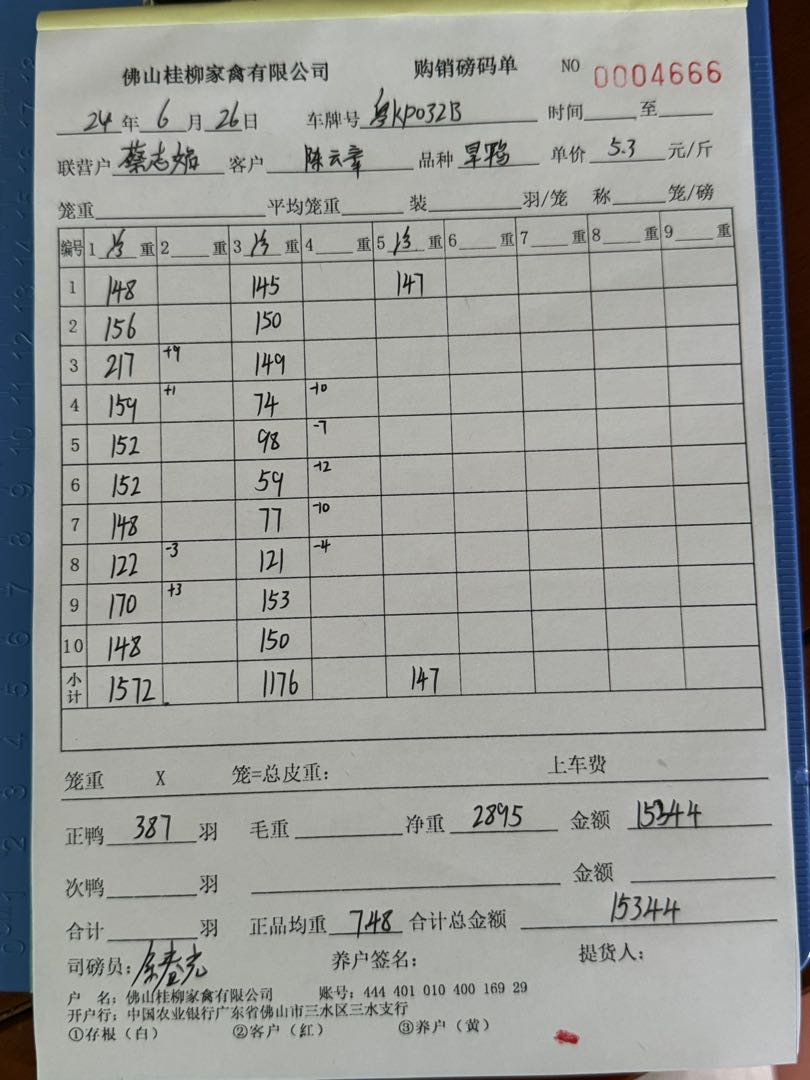 佛山桂柳家禽有限公司 购销磅码单 NO 0004666
24年6月26日 车牌号粤KP032B 时间 至
联营户 蔡志娟 客户 陈云章 品种 旱鸭 单价 5.3 元/斤
笼重 平均笼重 装 羽/笼 称 笼/磅
编号 1 净 重 2 重 3 净 重 4 重 5 净 重 6 重 7 重 8 重 9 重
1 148 145 147
2 156 150
3 217 +9 149
4 159 +1 74 -10
5 152 98 -7
6 152 59 -12
7 148 77 -10
8 122 -3 121 -4
9 170 +3 153
10 148 150
小计 1572 1176 147
笼重 X 笼=总皮重: 上车费
正鸭 387 羽 毛重 净重 2895 金额 15344
次鸭 羽 金额
合计 羽 正品均重 7.48 合计总金额 15344
司磅员: 养户签名: 提货人:
户 名: 佛山桂柳家禽有限公司 账号: 444 401 010 400 169 29
开户行: 中国农业银行广东省佛山市三水区三水支行
①存根（白） ②客户（红） ③养户（黄）